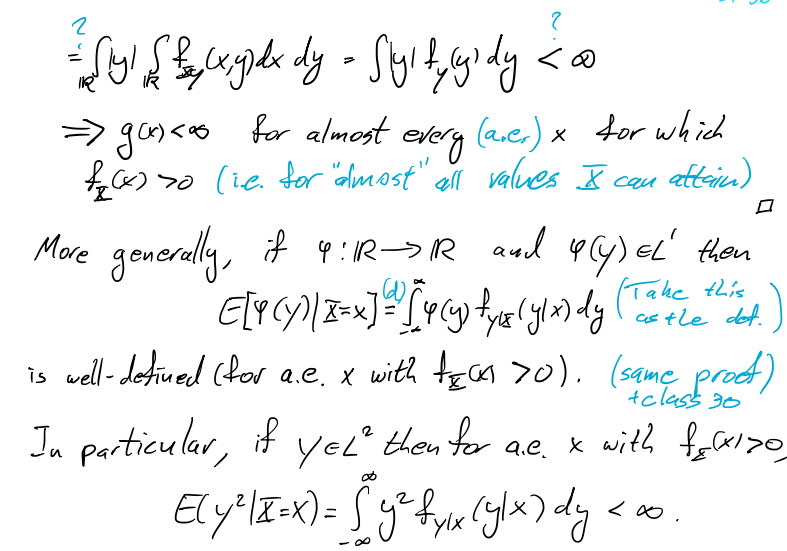 ?
?
= ∫_ℝ |y| ∫_ℝ f_{X,Y}(x,y) dx dy = ∫ |y| f_Y(y) dy < ∞
⟹ g(x) < ∞ for almost every (a.e.) x for which
f_X(x) > 0 (i.e. for "almost" all values X can attain)
□
More generally, if φ : ℝ → ℝ and φ(Y) ∈ L¹ then
E[φ(Y) | X=x] (d)= ∫_{-∞}^{∞} φ(y) f_{Y|X}(y|x) dy (Take this
as the def.)
is well-defined (for a.e. x with f_X(x) > 0). (same proof)
+ class 30
In particular, if Y ∈ L² then for a.e. x with f_X(x) > 0,
E(Y² | X=x) = ∫_{-∞}^{∞} y² f_{Y|X}(y|x) dy < ∞.